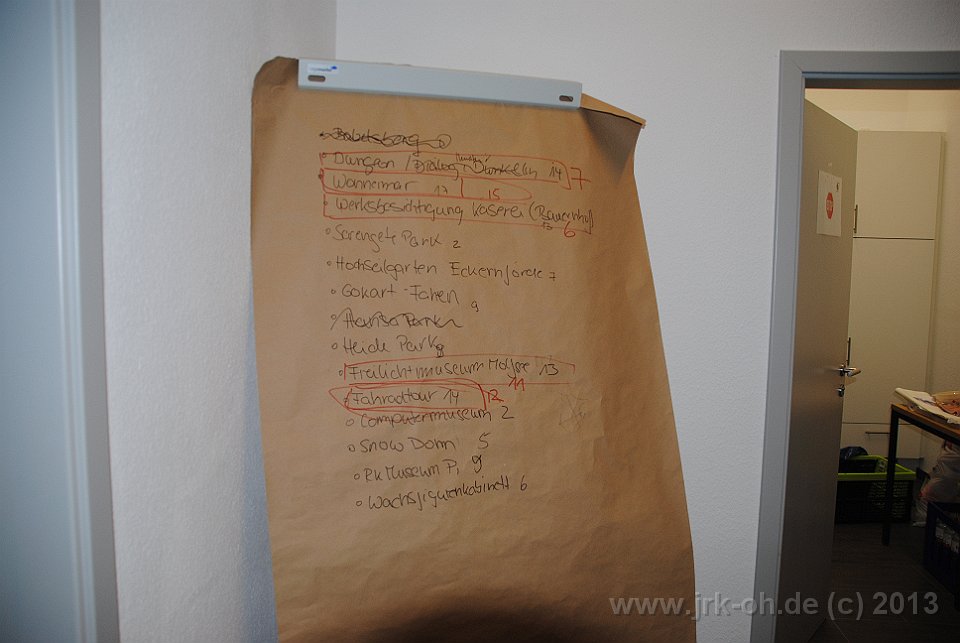 Babelsberg
• Dungen / Dialog i Dunkeln 14 7
• Wonnemar 17 15
• Werksbesichtigung Käserei (Bauernhof) 13 6
• Serengeti Park 2
• Hochseilgarten Eckernförde 7
• Gokart-Fahren 9
• Hansa Park
• Heide Park 8
• Freilichtmuseum Molfsee 13 11
• Fahradtour 14 12
• Computermuseum 2
• Snow Dom 5
• RK Museum P. 9
• Wachsfigurenkabinett 6
www.jrk-oh.de (c) 2013